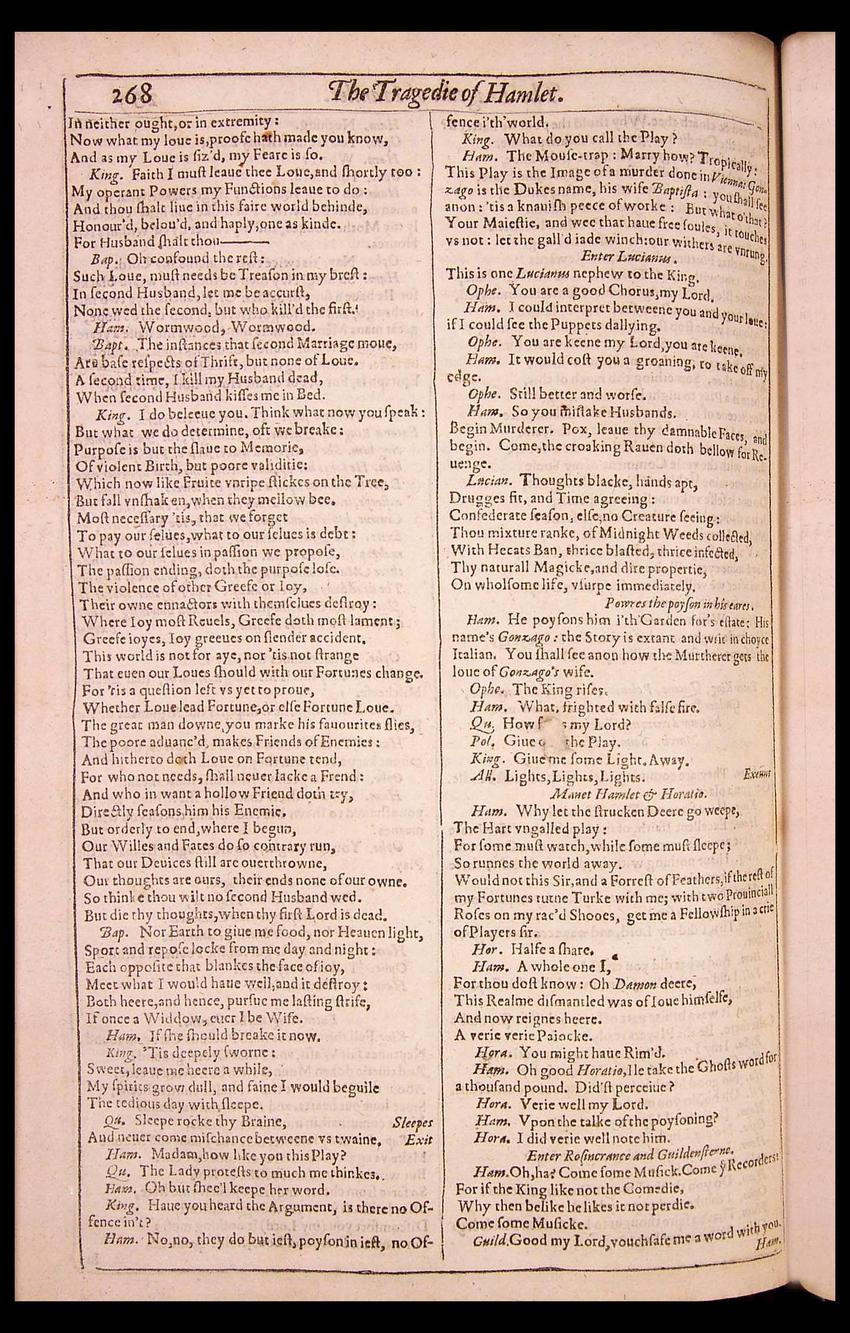 268
The Tragedie of Hamlet.
In neither ought, or in extremity:
Now what my loue is, proofe hath made you know,
And as my Loue is ſiz'd, my Feare is ſo.
King. Faith I muſt leaue thee Loue, and ſhortly too:
My operant Powers my Functions leaue to do:
And thou ſhalt liue in this faire world behinde,
Honour'd, belou'd, and haply, one as kinde.
For Husband ſhalt thou———
Bap. Oh confound the reſt:
Such Loue, muſt needs be Treaſon in my breſt:
In ſecond Husband, let me be accurſt,
None wed the ſecond, but who kill'd the firſt.
Ham. Wormwood, Wormwood.
Bapt. The inſtances that ſecond Marriage moue,
Are baſe reſpects of Thrift, but none of Loue.
A ſecond time, I kill my Husband dead,
When ſecond Husband kiſſes me in Bed.
King. I do beleeue you. Think what now you ſpeak:
But what we do determine, oft we breake:
Purpoſe is but the ſlaue to Memorie,
Of violent Birth, but poore validitie:
Which now like Fruite vnripe ſtickes on the Tree,
But fall vnſhaken, when they mellow bee.
Moſt neceſſary 'tis, that we forget
To pay our ſelues, what to our ſelues is debt:
What to our ſelues in paſſion we propoſe,
The paſſion ending, doth the purpoſe loſe.
The violence of other Greefe or Ioy,
Their owne ennactors with themſelues deſtroy:
Where Ioy moſt Reuels, Greefe doth moſt lament;
Greefe ioyes, Ioy greeues on ſlender accident.
This world is not for aye, nor 'tis not ſtrange
That euen our Loues ſhould with our Fortunes change.
For 'tis a queſtion left vs yet to proue,
Whether Loue lead Fortune, or elſe Fortune Loue.
The great man downe, you marke his fauourites flies,
The poore aduanc'd, makes Friends of Enemies:
And hitherto doth Loue on Fortune tend,
For who not needs, ſhall neuer lacke a Frend:
And who in want a hollow Friend doth try,
Directly ſeaſons him his Enemie.
But orderly to end, where I begun,
Our Willes and Fates do ſo contrary run,
That our Deuices ſtill are ouerthrowne,
Our thoughts are ours, their ends none of our owne.
So thinke thou wilt no ſecond Husband wed.
But die thy thoughts, when thy firſt Lord is dead.
Bap. Nor Earth to giue me food, nor Heauen light,
Sport and repoſe locke from me day and night:
Each oppoſite that blankes the face of ioy,
Meet what I would haue well, and it deſtroy:
Both heere, and hence, purſue me laſting ſtrife,
If once a Widdow, euer I be Wife.
Ham. If ſhe ſhould breake it now.
King. 'Tis deepely ſworne:
Sweet, leaue me heere a while,
My ſpirits grow dull, and faine I would beguile
The tedious day with ſleepe.
Qu. Sleepe rocke thy Braine, Sleepes
And neuer come miſchance betweene vs twaine, Exit
Ham. Madam, how like you this Play?
Qu. The Lady proteſts to much me thinkes.
Ham. Oh but ſhee'l keepe her word.
King. Haue you heard the Argument, is there no Of-
fence in't?
Ham. No, no, they do but ieſt, poyſon in ieſt, no Of-
fence i'th'world.
King. What do you call the Play?
Ham. The Mouſe-trap: Marry how? Tropically:
This Play is the Image of a murder done in Vienna: Gon-
zago is the Dukes name, his wife Baptiſta: you ſhall ſee
anon: 'tis a knauiſh peece of worke: But what o'that?
Your Maieſtie, and wee that haue free ſoules, it touches
vs not: let the gall'd iade winch: our withers are vnrung.
Enter Lucianus.
This is one Lucianus nephew to the King.
Ophe. You are a good Chorus, my Lord.
Ham. I could interpret betweene you and your loue:
if I could ſee the Puppets dallying.
Ophe. You are keene my Lord, you are keene.
Ham. It would coſt you a groaning, to take off my
edge.
Ophe. Still better and worſe.
Ham. So you miſtake Husbands.
Begin Murderer. Pox, leaue thy damnable Faces, and
begin. Come, the croaking Rauen doth bellow for Re-
uenge.
Lucian. Thoughts blacke, hands apt,
Drugges fit, and Time agreeing:
Confederate ſeaſon, elſe, no Creature ſeeing:
Thou mixture ranke, of Midnight Weeds collected,
With Hecats Ban, thrice blaſted, thrice infected,
Thy naturall Magicke, and dire propertie,
On wholſome life, vſurpe immediately.
Powres the poyſon in his eares.
Ham. He poyſons him i'th'Garden for's eſtate: His
name's Gonzago: the Story is extant and writ in choyce
Italian. You ſhall ſee anon how the Murtherer gets the
loue of Gonzago's wife.
Ophe. The King riſes.
Ham. What, frighted with falſe fire.
Qu. How f s my Lord?
Pol. Giue o the Play.
King. Giue me ſome Light. Away.
All. Lights, Lights, Lights. Exeunt
Manet Hamlet & Horatio.
Ham. Why let the ſtrucken Deere go weepe,
The Hart vngalled play:
For ſome muſt watch, while ſome muſt ſleepe;
So runnes the world away.
Would not this Sir, and a Forreſt of Feathers, if the reſt of
my Fortunes turne Turke with me; with two Prouinciall
Roſes on my rac'd Shooes, get me a Fellowſhip in a crie
of Players ſir.
Hor. Halfe a ſhare.
Ham. A whole one I,
For thou doſt know: Oh Damon deere,
This Realme diſmantled was of Ioue himſelfe,
And now reignes heere.
A verie verie Paiocke.
Hora. You might haue Rim'd.
Ham. Oh good Horatio, Ile take the Ghoſts word for
a thouſand pound. Did'ſt perceiue?
Hora. Verie well my Lord.
Ham. Vpon the talke of the poyſoning?
Hora. I did verie well note him.
Enter Roſincrance and Guildenſterne.
Ham. Oh, ha? Come ſome Muſick. Come ẙ Recorders:
For if the King like not the Comedie,
Why then belike he likes it not perdie.
Come ſome Muſicke.
Guild. Good my Lord, vouchſafe me a word with you.
Ham.